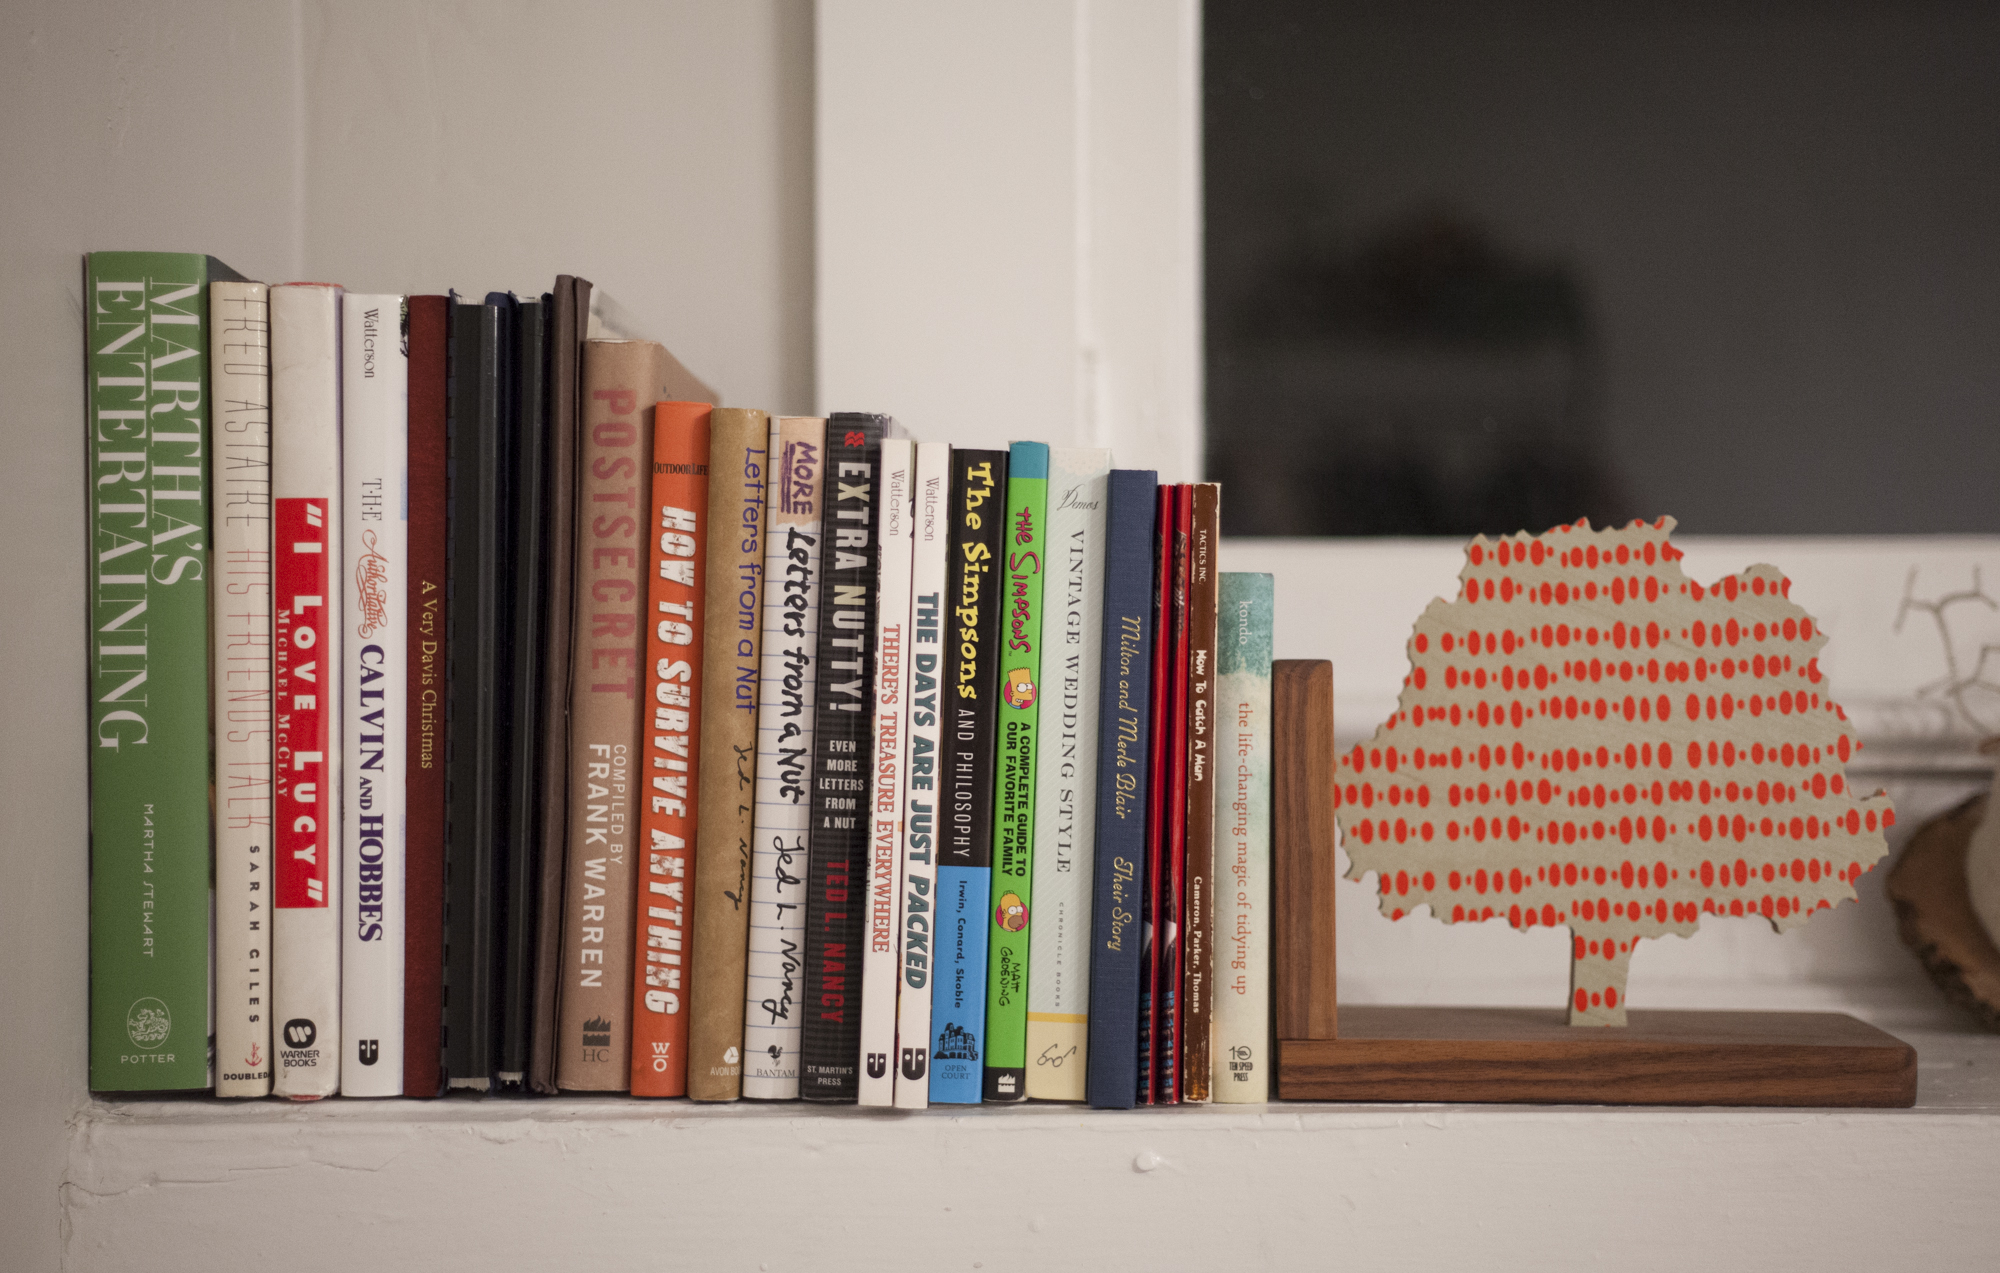 MARTHA'S
ENTERTAINING
MARTHA STEWART
POTTER
FRED ASTAIRE HIS FRIENDS TALK
SARAH GILES
DOUBLEDA
"I LOVE LUCY"
MICHAEL McCLAY
WARNER
BOOKS
Watterson
THE Authoritative CALVIN AND HOBBES
A Very Davis Christmas
POSTSECRET
COMPILED BY
FRANK WARREN
HC
OUTDOOR LIFE
HOW TO SURVIVE ANYTHING
W|O
Letters from a Nut
Ted L. Nancy
AVON BO
MORE Letters from a Nut
Ted L. Nancy
BANTAM
EXTRA NUTTY!
EVEN
MORE
LETTERS
FROM
A NUT
TED L. NANCY
ST. MARTIN'S
PRESS
Watterson
THERE'S TREASURE EVERYWHERE
Watterson
THE DAYS ARE JUST PACKED
The Simpsons AND PHILOSOPHY
Irwin, Conard, Skoble
OPEN
COURT
THE SIMPSONS
A COMPLETE GUIDE TO
OUR FAVORITE FAMILY
MATT
GROENING
Demos
VINTAGE WEDDING STYLE
CHRONICLE BOOKS
Milton and Merle Blair
Their Story
TACTICS INC.
How To Catch A Man
Cameron, Parker, Thomas
kondo
the life-changing magic of tidying up
TEN SPEED
PRESS